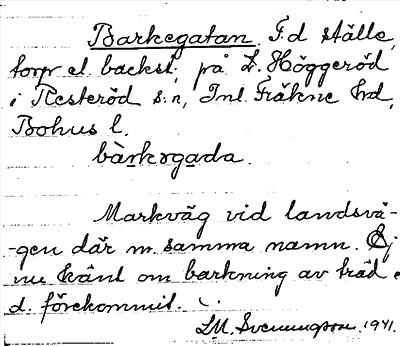 Barkegatan. F.d ställe,
torp el. backst. på L. Höggeröd
i Resteröd s:n, Inl. Fräkne hd,
Bohus l.
bàrkəgada.
Markväg vid landsvä-
-gen där m. samma namn. Ej
nu känt om barkning av träd
d. förekommit.
LM. Svenungsson. 1941.